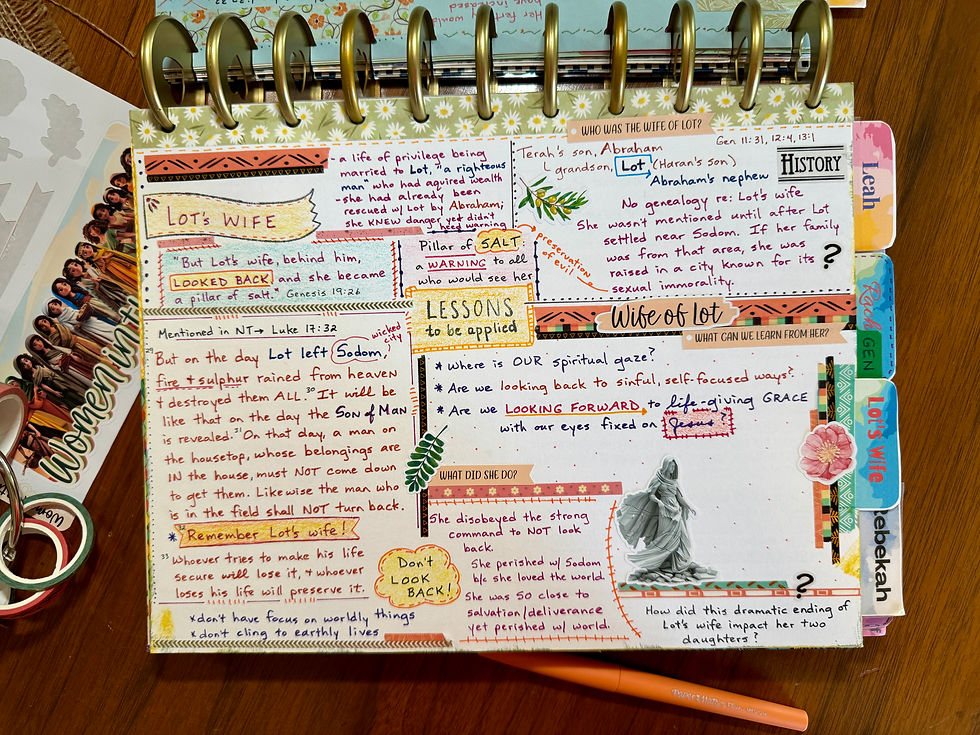 Her fertility would
have increased
WHO WAS THE WIFE OF LOT?
Gen 11:31, 12:4, 13:1
- a life of privilege being
married to Lot, "a righteous
man" who had aquired wealth
- she had already been
rescued w/ Lot by Abraham;
she KNEW danger yet didn't
heed warning
LOT'S WIFE
"But Lot's wife, behind him,
LOOKED BACK and she became
a pillar of salt." Genesis 19:26
Pillar of SALT:
a WARNING to all
who would see her
preservation
of evil
Terah's son, Abraham
grandson, Lot (Haran's son)
Abraham's nephew
HISTORY
No genealogy re: Lot's wife
She wasn't mentioned until after Lot
settled near Sodom. If her family
was from that area, she was
raised in a city known for its
sexual immorality.
?
LESSONS
to be applied
Wife of Lot
WHAT CAN WE LEARN FROM HER?
* Where is OUR spiritual gaze?
* Are we looking back to sinful, self-focused ways?
* Are we LOOKING FORWARD to life-giving GRACE
with our eyes fixed on Jesus?
Mentioned in NT → Luke 17:32
wicked
city
29 But on the day Lot left Sodom,
fire + sulphur rained from heaven
+ destroyed them ALL. 30 It will be
like that on the day the SON of MAN
is revealed. 31 On that day, a man on
the housetop, whose belongings are
IN the house, must NOT come down
to get them. Likewise the man who
is in the field shall NOT turn back.
* 32 Remember Lot's wife!
33 Whoever tries to make his life
secure will lose it, + whoever
loses his life will preserve it.
* don't have focus on worldly things
* don't cling to earthly lives
Don't
LOOK
BACK!
WHAT DID SHE DO?
She disobeyed the strong
command to NOT look
back.
She perished w/ Sodom
b/c she loved the world.
She was SO close to
salvation/deliverance
yet perished w/ world.
?
How did this dramatic ending of
Lot's wife impact her two
daughters?
Leah
GEN
Lot's Wife
Rebekah
Women in t
Wom